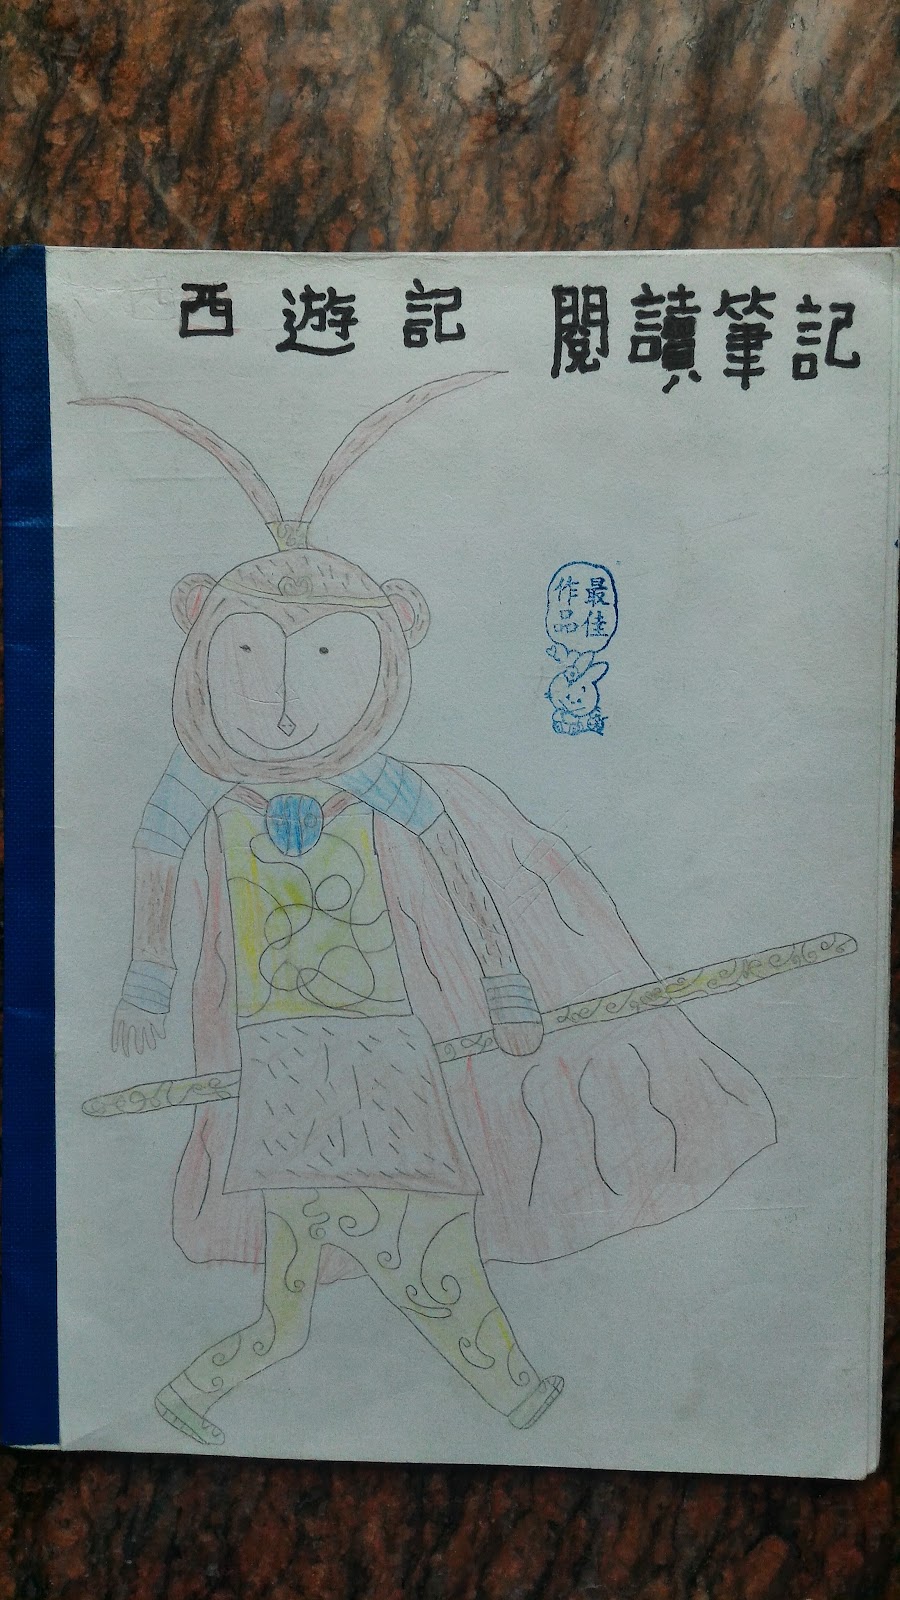 西遊記 閱讀筆記
最佳
作品